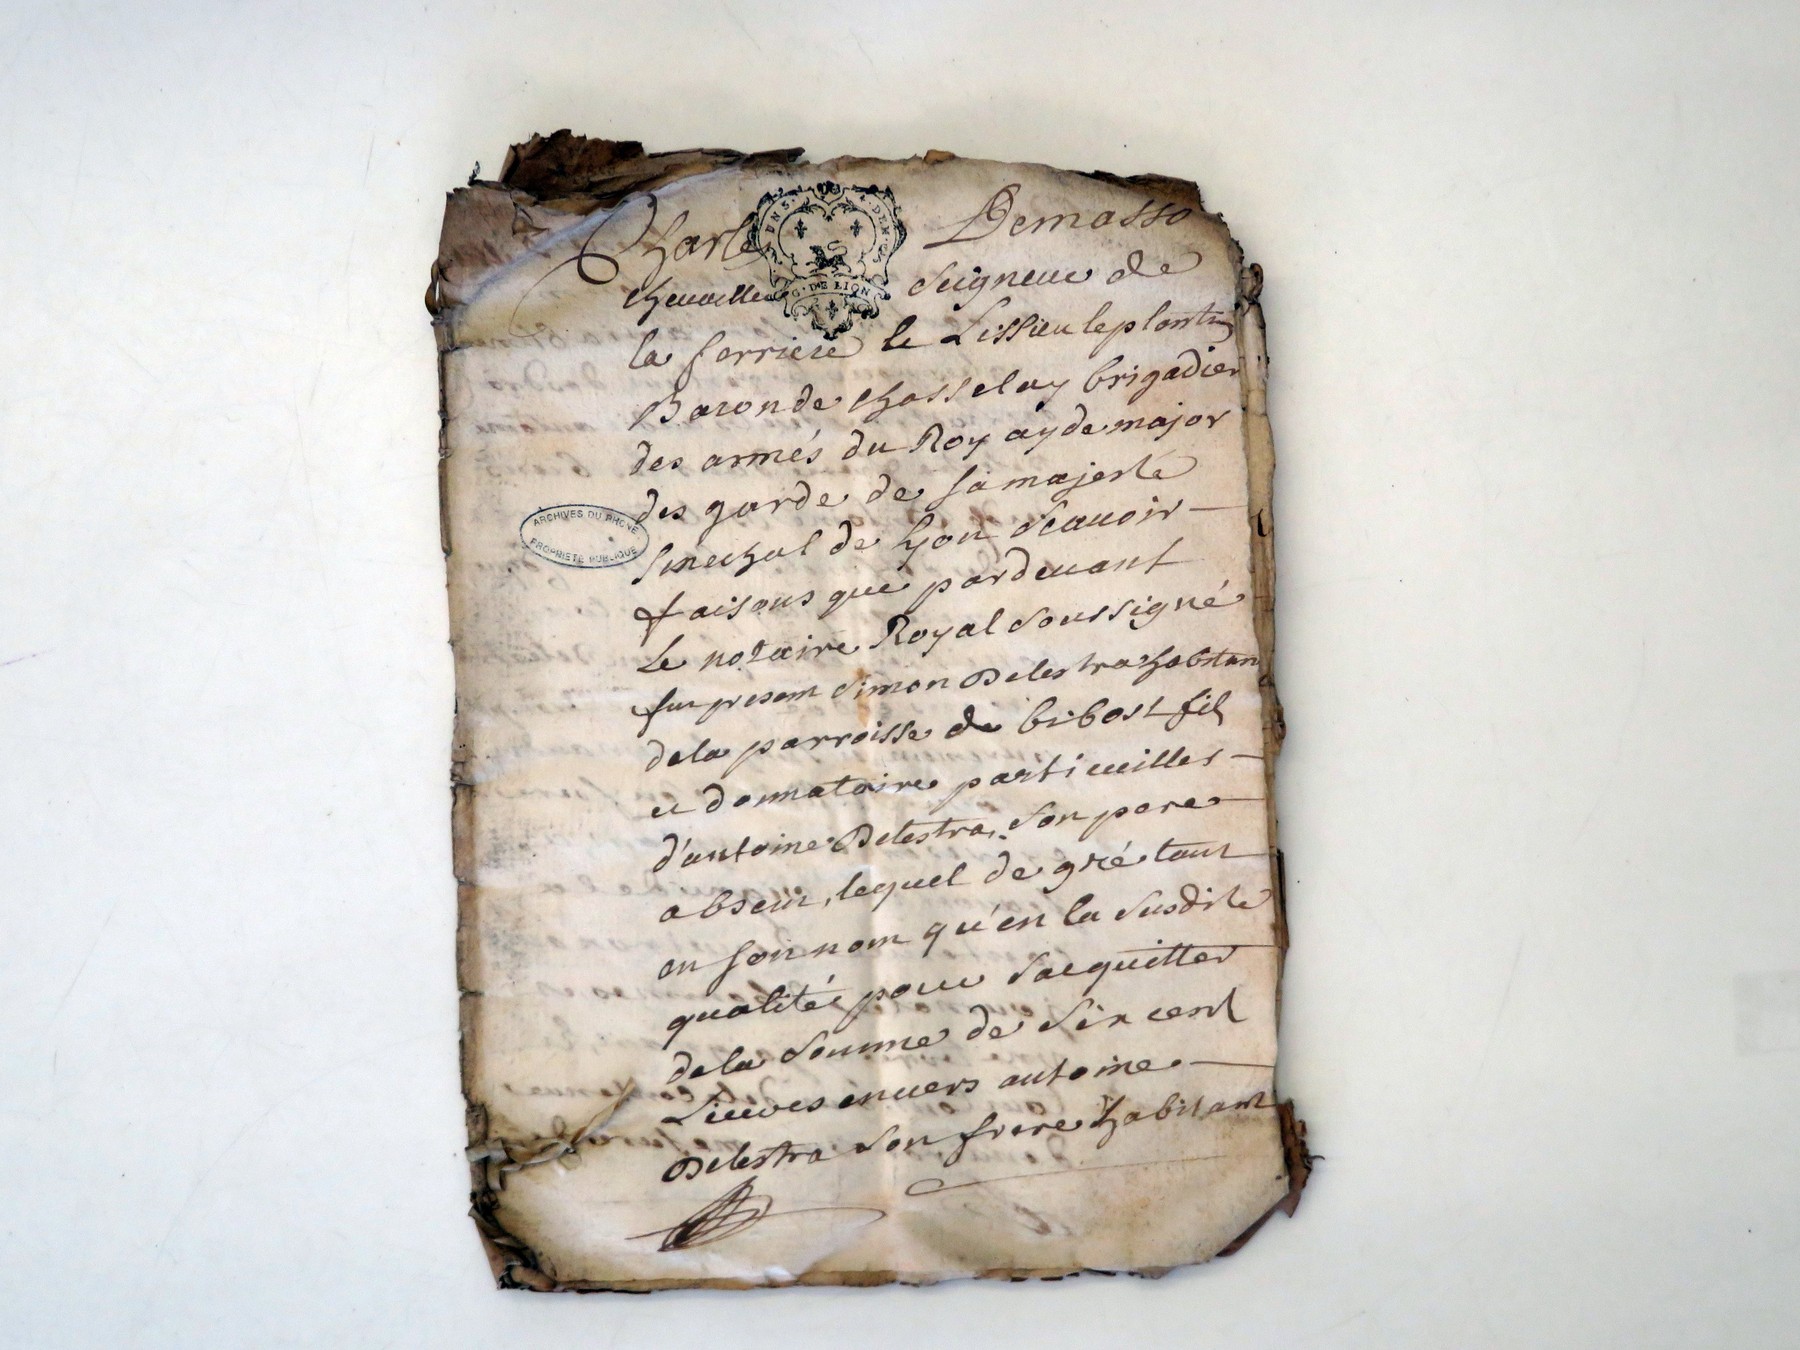 Charle Demasso
G. DE LION
chevallier Seigneur de
la ferriere le Lissieu le plantin
Baron de chasselay brigadier
des armés du Roy ayde major
des garde de sa majesté
senechal de Lyon scavoir
faisons que pardevant
Le notaire Royal soussigné
fut present simon Delestra habitant
dela parroisse de bibost fils
et donnataire particuilles
d'antoine Delestra, son pere
absent, lequel de gré tant
en son nom qu'en la susdite
qualitée pour sacquitter
dela somme de six cent
Livres envers antoine
Delestra son frere habitant
ARCHIVES DU RHONE
PROPRIETE PUBLIQUE